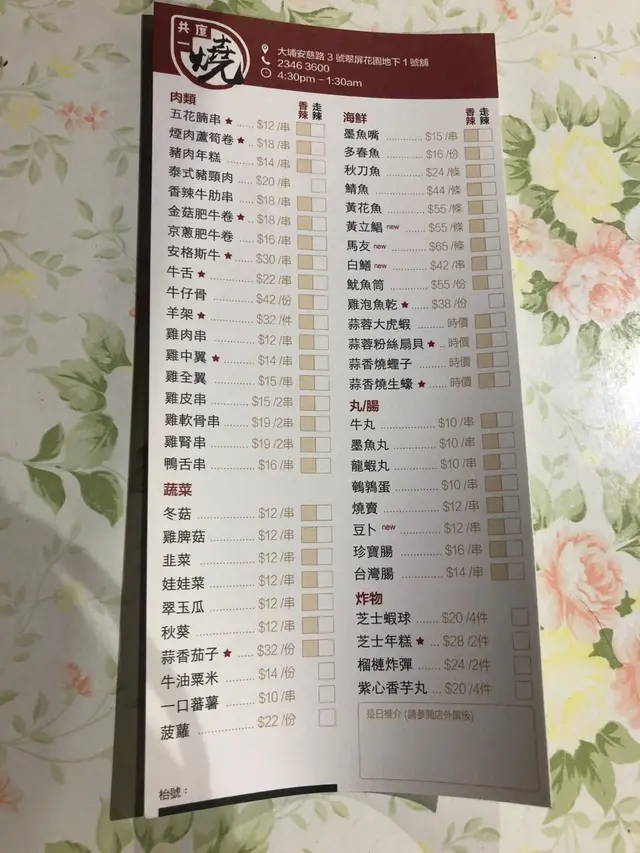 共度
一燒
大埔安慈路 3 號翠屏花園地下 1 號舖
2346 3600
4:30pm – 1:30am
肉類 香辣 走辣
五花腩串★ ...... $12 /串
煙肉蘆筍卷★ .. $18 /串
豬肉年糕 ........ $14 /串
泰式豬頸肉 ..... $20 /串
香辣牛肋串 ..... $18 /串
金菇肥牛卷★ .. $18 /串
京蔥肥牛卷 ..... $16 /串
安格斯牛★ ...... $30 /串
牛舌★ ............ $22 /串
牛仔骨 ........... $42 /份
羊架★ ............ $32 /件
雞肉串 ........... $12 /串
雞中翼★ ......... $14 /串
雞全翼 ........... $15 /串
雞皮串 ........... $15 /2串
雞軟骨串 ........ $19 /2串
雞腎串 ........... $19 /2串
鴨舌串 ........... $16 /串
蔬菜
冬菇 .............. $12 /串
雞脾菇 ........... $12 /串
韭菜 .............. $12 /串
娃娃菜 ........... $12 /串
翠玉瓜 ........... $12 /串
秋葵 .............. $12 /串
蒜香茄子★ ...... $32 /份
牛油粟米 ........ $14 /份
一口蕃薯 ........ $10 /串
菠蘿 .............. $22 /份
枱號：
海鮮 香辣 走辣
墨魚嘴 ........... $15 /串
多春魚 ........... $16 /份
秋刀魚 ........... $24 /條
鯖魚 .............. $44 /條
黃花魚 ........... $55 /條
黃立鯧 new ...... $55 /條
馬友 new ......... $65 /條
白鱔 new ......... $42 /串
魷魚筒 ........... $55 /份
雞泡魚乾★ ...... $38 /份
蒜蓉大虎蝦 ........ 時價
蒜蓉粉絲扇貝★ .. 時價
蒜香燒蟶子 ........ 時價
蒜香燒生蠔★ ..... 時價
丸/腸
牛丸 .............. $10 /串
墨魚丸 ........... $10 /串
龍蝦丸 ........... $10 /串
鵪鶉蛋 ........... $10 /串
燒賣 .............. $12 /串
豆卜 new ......... $12 /串
珍寶腸 ........... $16 /串
台灣腸 ........... $14 /串
炸物
芝士蝦球 ..... $20 /4件
芝士年糕★ ... $28 /2件
榴槤炸彈 ..... $24 /2件
紫心香芋丸 .. $20 /4件
是日推介 (請參閱店外餐板)